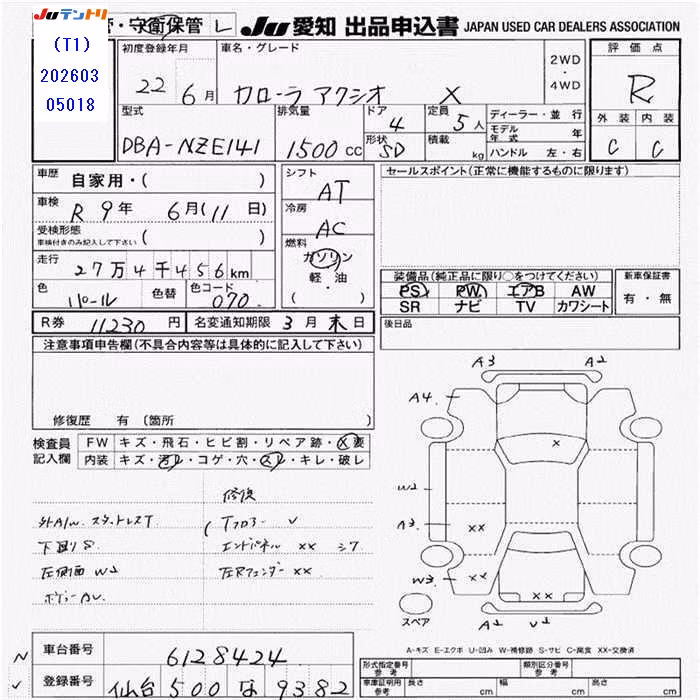 Juテントリ
（T1）
202603
05018
管・守衛保管 L
Ju 愛知 出品申込書 JAPAN USED CAR DEALERS ASSOCIATION
初度登録年月
22 6月
車名・グレード
カローラ アクシオ X
2WD
・
4WD
評価点
R
外装 内装
C C
型式
DBA-NZE141
排気量
1500 cc
ドア
4
形状
SD
定員
5人
積載 kg
ディーラー・並行
モデル年式 年
ハンドル 左・右
車歴
自家用・( )
車検
R 9年 6月(11日)
受検形態
車検付きのみ記入して下さい ( )
走行
27万4千456km
色
パール
色替
色コード
070
シフト
AT
冷房
AC
燃料
ガソリン
軽・油
( )
セールスポイント（正常に機能するものに限ります）
装備品（純正品に限り○をつけてください）
PS PW エアB AW
SR ナビ TV カワシート
新車保証書
有・無
R券 11230 円
名変通知期限 3月末日
後日品
注意事項申告欄（不具合内容等は具体的に記入して下さい）
修復歴 有（箇所
検査員
記入欄
FW キズ・飛石・ヒビ割・リペア跡・X要
内装 キズ・汚レ・コゲ・穴・スレ・キレ・破レ
修復
外A/W. スタッドレスT
( Tフロアー ✓
下廻りS
エンドパネル XX シワ
左側面 W2
左Rフェンダー XX
A3 A2
A4
X
W2
A3 XX
W3 XX
XX
スペア
A2 U2
A-キズ E-エクボ U-凹み W-補修跡 S-サビ C-腐食 XX-交換済
N 車台番号 6128424
✓ 登録番号 仙台 500 な 9382
形式指定番号
参考
類別区分番号
参考
車庫証明用
参考
長さ cm 幅 cm 高さ cm